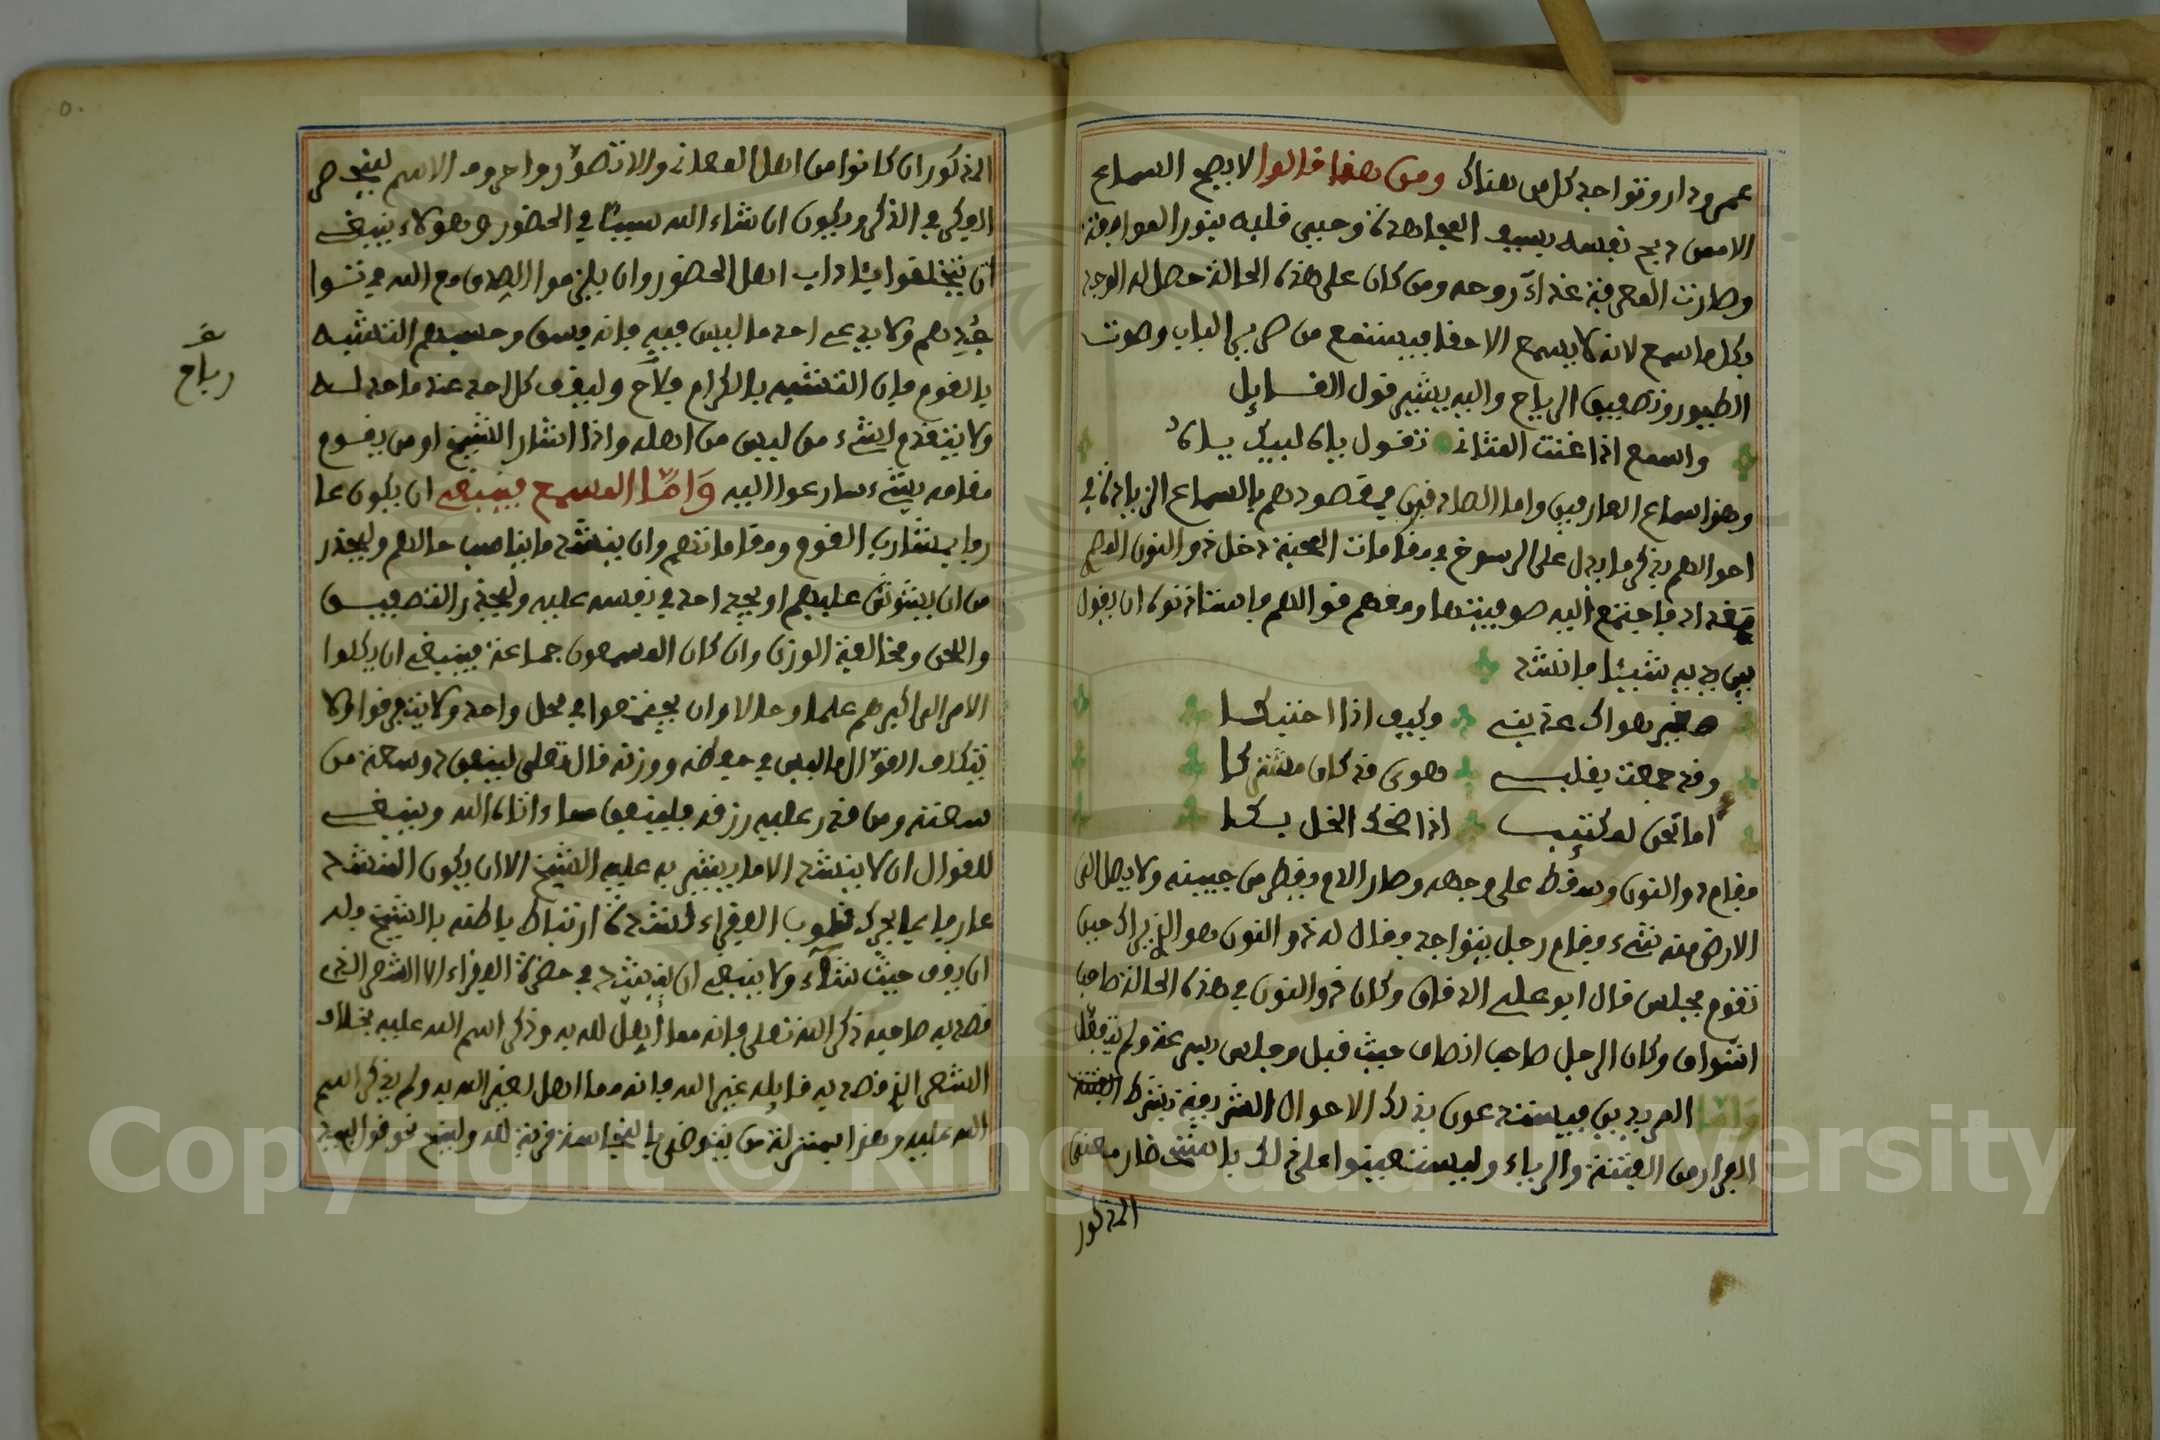 عمره دار وتواجد كل من هناك ومن هنا قالوا لا يصح السماع
الا ممن ذبح نفسه بسيف المجاهدة وحيي قلبه بنور الموافقة
وصارت المعرفة غذاء روحه ومن كان على هذه الحالة حصل له الوجد
بكل ما سمع لانه لا يسمع الا حقا فيستمع من صرير الباب وصوت
الطيور وتصفيق الرياح واليه يشير قول القائل
واسمع اذا غنت المثاني تقول يا لبيك يا
وهذا سماع العارفين واما الصادقين فمقصودهم بالسماع الزيادة في
احوالهم بذكر ما يدل على الرسوخ في مقامات المحبة دخل ذو النون المصري
بغداد فاجتمع اليه صوفيتها ومعهم قوالهم فاستاذنوه ان يقول
بين يديه شيئا فانشد
صغير هواك عذبني وكيف اذا احتنكا
وقد جمعت بقلبي هوى قد كان مشتركا
اما تحن لمكتئب اذا ضحك الخل بكا
فقام ذو النون وسقط على وجهه وصار الدم يقطر من جبينه ولا يصل الى
الارض منه شيء فقام رجل يتواجد فقال له ذو النون هو الذي يراك حين
تقوم فجلس قال ابو علي الدقاق وكان ذو النون في هذه الحالة صاحب
اشراف وكان الرجل صاحب انصاف حيث قبل وجلس
واما المريدين فيستدعون بذلك الاحوال الشريفة بشرط
الفرار من الفتنة والرياء وليستعينوا على ذلك باستحضار معنى
المذكور
المذكور ان كانوا من اهل المعاني والا تصوروا حروف الاسم
الفكر في الذكر ويكون ان شاء الله سببا في الحضور وهؤلاء ينبغي
ان يتخلقوا بآداب اهل الحضور وان يلزموا الصدق مع الله في تشوا
جدهم ولا يدعي احد ما ليس فيه فانه فسق وحسبهم التشبه
بالقوم فان التشبه بالكرام فلاح وليقف كل احد عند ما حد له
ولا يتقدم لشيء من ليس من اهله واذا اشار الشيخ او من يقوم
مقامه بشيء سارعوا اليه واما المسمع فينبغي ان يكون عا
رفا بمشارب القوم ومقاماتهم وان ينشد ما يناسب حالهم وليحذر
من ان يشوش عليهم او يجد احد في نفسه عليه وليحذر التصفيق
واللحن ومخالفة الوزن وان كان المسمعون جماعة فينبغي ان يكلوا
الامر الى اكبرهم علما وحالا وان يجتمعوا في محل واحد ولا يتفرقوا ولا
يتكلف القوال ما ليس في حفظه ووزنه قال تعلى لينفق ذو سعة من
سعته ومن قدر عليه رزقه فلينفق مما آتاه الله وينبغي
للقوال ان لا ينشد الا ما يشير به عليه الشيخ الا ان يكون المنشد
عارفا بما يحرك قلوب الفقراء لشدة ارتباط باطنه بالشيخ فله
ان يقف حيث شاء ولا ينبغي ان ينشد في حضرة الفقراء الا الشعر الذي
قصد به صاحبه ذكر الله تعلى فانه مما اهل لله به وذكر اسم الله عليه بخلاف
الشعر الذي قصد به قايله غير الله فانه مما اهل لغير الله به ولم يذكر اسم
الله عليه وهذا بمنزلة من يتوضى بالنجاسة قربة لله
رباح
Copyright © King Saud University